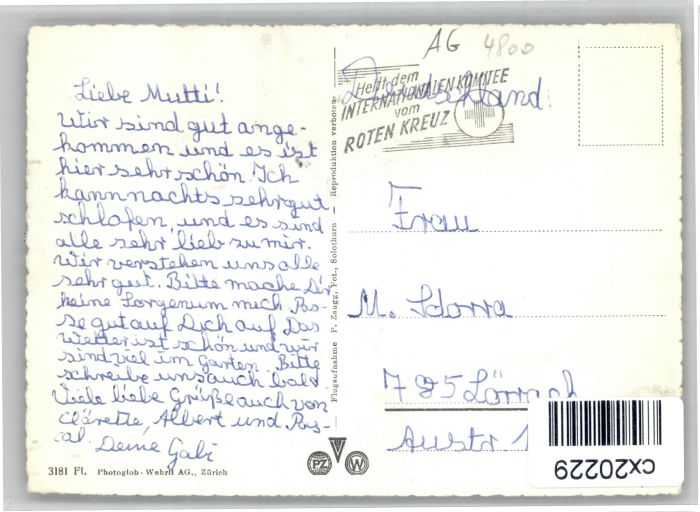 Liebe Mutti!
Wir sind gut ange-
kommen und es ist
hier sehr schön. Ich
kann nachts sehr gut
schlafen, und es sind
alle sehr lieb zu mir.
Wir verstehen uns alle
sehr gut. Bitte mache Dir
keine Sorgen um mich Pas-
se gut auf Dich auf Das
Wetter ist schön und wir
sind viel im Garten. Bitte
schreibe uns auch bald
Viele liebe Grüße auch von
Clärette, Albert und Pas-
cal. Deine Gabi
3181 Fl. Photoglob-Wehrli AG., Zürich
Flugaufnahme P. Zaugg, Fot., Solothurn – Reproduktion verboten
PZ W
AG 4800
Helft dem
INTERNATIONALEN KOMITEE
vom
ROTEN KREUZ
Deutschland
Frau
M. Sdorra
785 Lörrach
Austr 1
cx20229